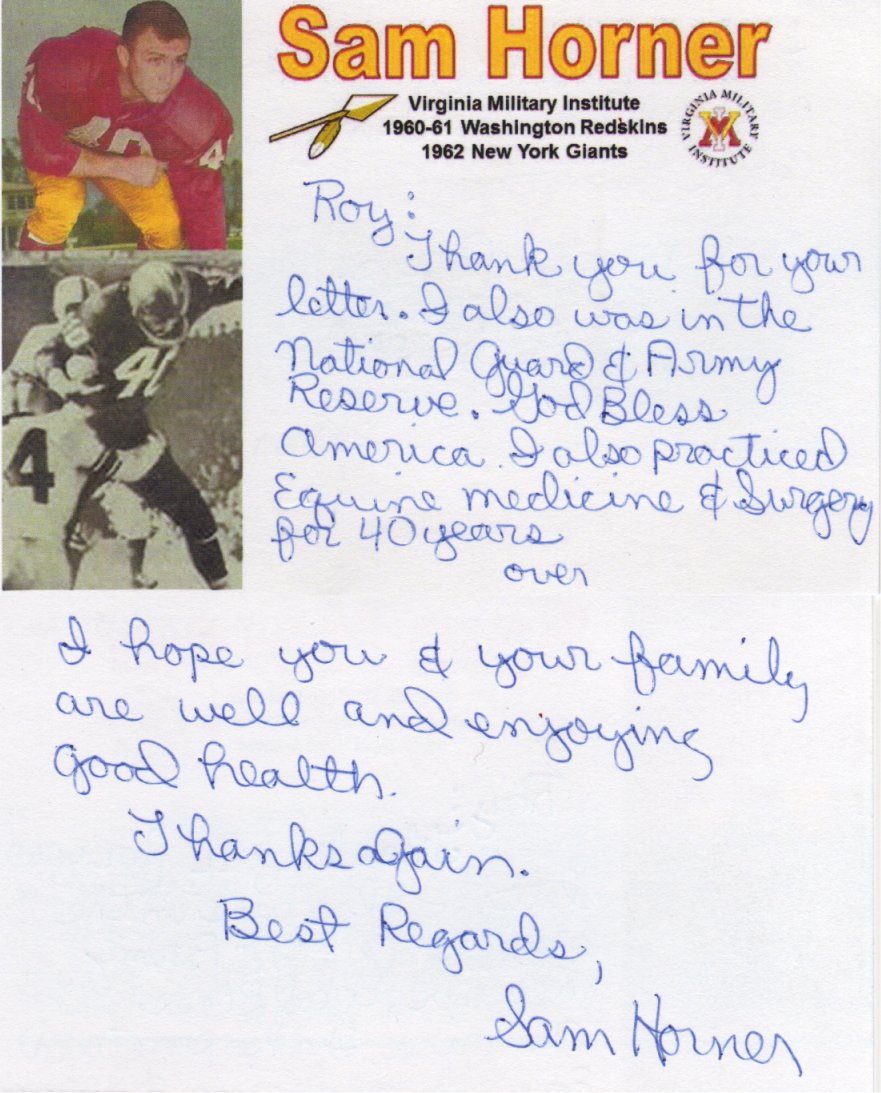 Sam Horner
Virginia Military Institute
1960-61 Washington Redskins
1962 New York Giants
VIRGINIA MILITARY INSTITUTE
Roy:
Thank you for your
letter. I also was in the
National Guard & Army
Reserve. God Bless
America. I also practiced
Equine medicine & Surgery
for 40 years
over
40
4
I hope you & your family
are well and enjoying
good health.
Thanks again.
Best Regards,
Sam Horner